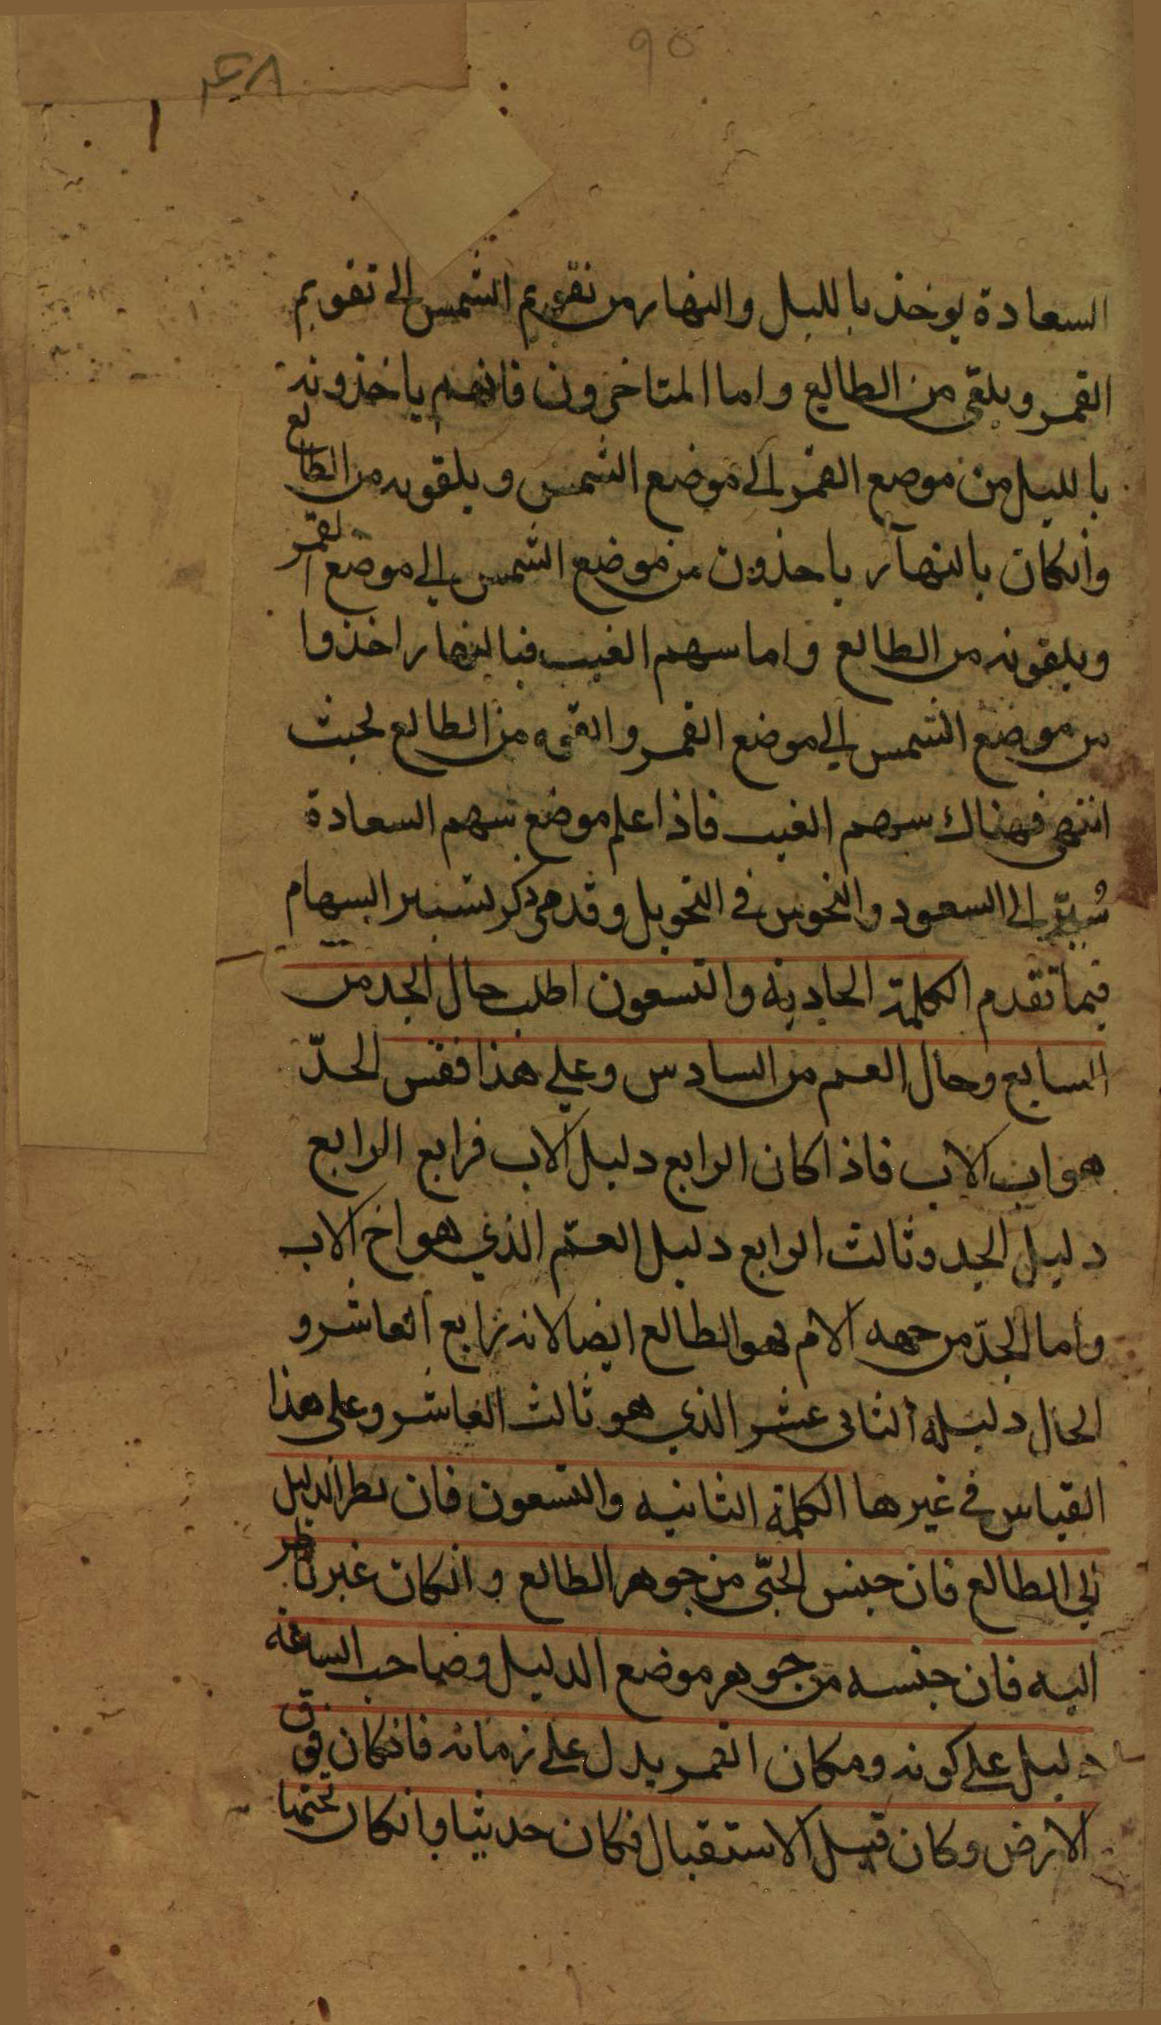 ٩٥
السعادة يوخذ بالليل والنهار من تقويم الشمس الى تقويم
القمر ويلقى من الطالع واما المتاخرون فانهم ياخذونه
بالليل من موضع القمر الى موضع الشمس ويلقونه من الطالع
وانكان بالنهار ياخذون من موضع الشمس الى موضع القمر
ويلقونه من الطالع واما سهم الغيب فبالنهار اخذوا
من موضع الشمس الى موضع القمر والقوه من الطالع فحيث
انتهى فهناك سهم الغيب فاذا علم موضع سهم السعادة
سُيّر الى السعود والنحوس في التحويل وقد مر ذكر تسيير السهام
فيما تقدم الكلمة الحادية والتسعون اطلب حال الجد من
السابع وحال العم من السادس وعلى هذا فقس الجدّ
هو اب الاب فاذا كان الرابع دليل الاب فرابع الرابع
دليل الجد وثالث الرابع دليل العمّ الذي هو اخ الاب
واما الجدّ من جهه الام فهو الطالع ايضا لانه رابع العاشر و
الخال دليله الثانى عشر الذي هو ثالث العاشر وعلى هذا
القياس في غيرها الكلمة الثانيه والتسعون فان نظر الدليل
الى الطالع فان جنس الخبّى من جوهر الطالع وانكان غير ناظر
اليه فان جنسه من جوهر موضع الدليل وصاحب الساعة
دليل على كونه ومكان القمر يدل على زمانه فانكان فوق
الارض وكان قبل الاستقبال فكان حديثا وانكان تحتها